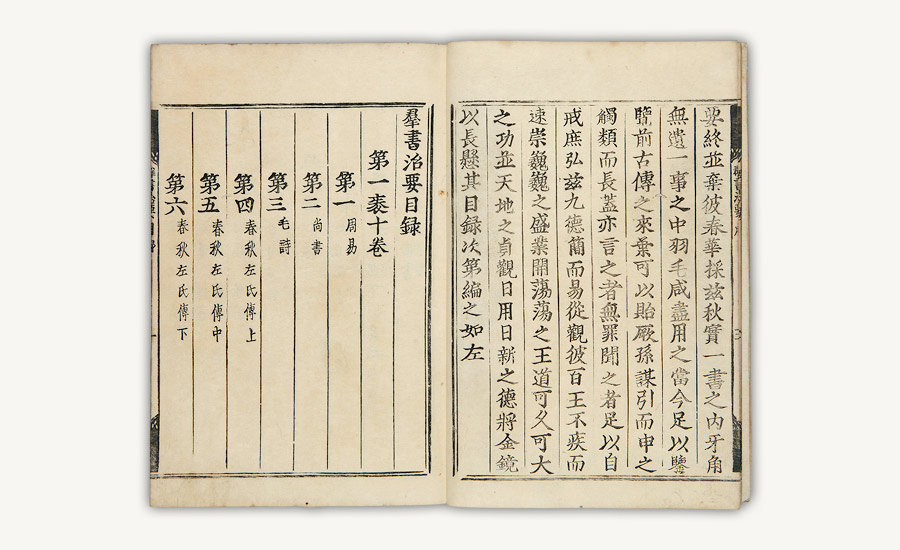 要終並棄彼春華採玆秋實一書之内牙角
無遺一事之中羽毛咸盡用之當今足以鑒
覽前古傳之來葉可以貽厥孫謀引而申之
觸類而長蓋亦言之者無罪聞之者足以自
戒庶弘玆九德簡而易從觀彼百王不疾而
速崇巍巍之盛業開蕩蕩之王道可久可大
之功並天地之貞觀日用日新之德將金鏡
以長懸其目録次第編之如左
羣書治要目録
第一袠十卷
第一 周易
第二 尚書
第三 毛詩
第四 春秋左氏傳上
第五 春秋左氏傳中
第六 春秋左氏傳下